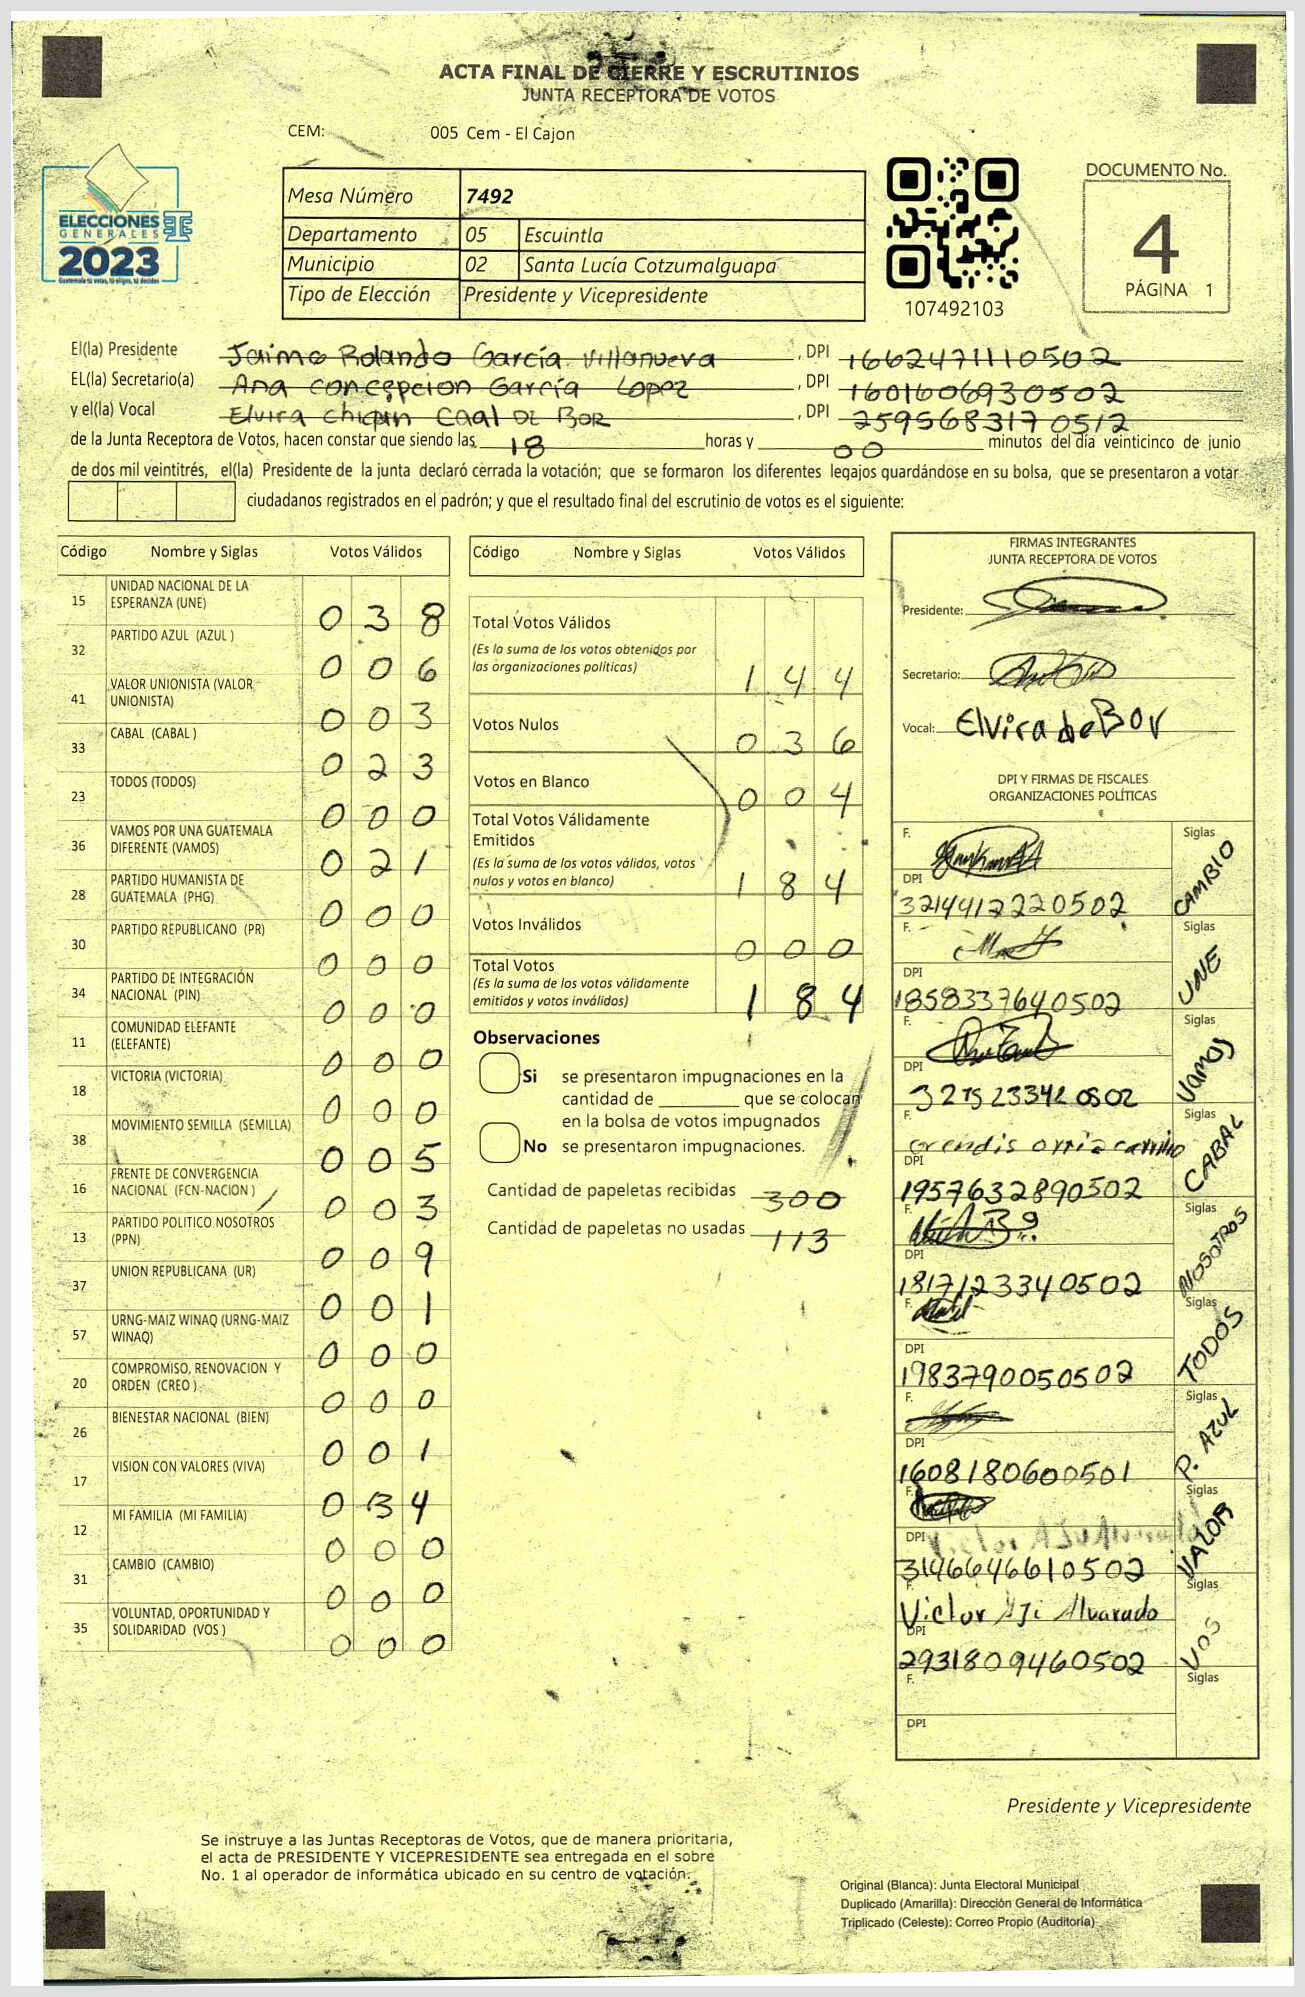 ACTA FINAL DE CIERRE Y ESCRUTINIOS
JUNTA RECEPTORA DE VOTOS
CEM: 005 Cem - El Cajon
ELECCIONES
GENERALES
2023
Guatemala tú votas, tú eliges, tú decides
Mesa Número 7492
Departamento 05 Escuintla
Municipio 02 Santa Lucía Cotzumalguapa
Tipo de Elección Presidente y Vicepresidente
107492103
DOCUMENTO No.
4
PÁGINA 1
El(la) Presidente Jaime Rolando García Villanueva, DPI 1662471110502
EL(la) Secretario(a) Ana concepcion García Lopez, DPI 1601606930502
y el(la) Vocal Elvira chipin Caal DE BOR, DPI 2595683170512
de la Junta Receptora de Votos, hacen constar que siendo las 18 horas y 00 minutos del día veinticinco de junio
de dos mil veintitrés, el(la) Presidente de la junta declaró cerrada la votación; que se formaron los diferentes legajos guardándose en su bolsa, que se presentaron a votar
ciudadanos registrados en el padrón; y que el resultado final del escrutinio de votos es el siguiente:
Código Nombre y Siglas Votos Válidos
15 UNIDAD NACIONAL DE LA
ESPERANZA (UNE) 0 3 8
32 PARTIDO AZUL (AZUL ) 0 0 6
41 VALOR UNIONISTA (VALOR
UNIONISTA) 0 0 3
33 CABAL (CABAL ) 0 2 3
23 TODOS (TODOS) 0 0 0
36 VAMOS POR UNA GUATEMALA
DIFERENTE (VAMOS) 0 2 1
28 PARTIDO HUMANISTA DE
GUATEMALA (PHG) 0 0 0
30 PARTIDO REPUBLICANO (PR) 0 0 0
34 PARTIDO DE INTEGRACIÓN
NACIONAL (PIN) 0 0 0
11 COMUNIDAD ELEFANTE
(ELEFANTE) 0 0 0
18 VICTORIA (VICTORIA) 0 0 0
38 MOVIMIENTO SEMILLA (SEMILLA) 0 0 5
16 FRENTE DE CONVERGENCIA
NACIONAL (FCN-NACION ) 0 0 3
13 PARTIDO POLITICO NOSOTROS
(PPN) 0 0 9
37 UNION REPUBLICANA (UR) 0 0 1
57 URNG-MAIZ WINAQ (URNG-MAIZ
WINAQ) 0 0 0
20 COMPROMISO, RENOVACION Y
ORDEN (CREO ) 0 0 0
26 BIENESTAR NACIONAL (BIEN) 0 0 1
17 VISION CON VALORES (VIVA) 0 3 4
12 MI FAMILIA (MI FAMILIA) 0 0 0
31 CAMBIO (CAMBIO) 0 0 0
35 VOLUNTAD, OPORTUNIDAD Y
SOLIDARIDAD (VOS ) 0 0 0
Código Nombre y Siglas Votos Válidos
Total Votos Válidos
(Es la suma de los votos obtenidos por
las organizaciones políticas) 1 4 4
Votos Nulos 0 3 6
Votos en Blanco 0 0 4
Total Votos Válidamente
Emitidos
(Es la suma de los votos válidos, votos
nulos y votos en blanco) 1 8 4
Votos Inválidos 0 0 0
Total Votos
(Es la suma de los votos válidamente
emitidos y votos inválidos) 1 8 4
Observaciones
Si se presentaron impugnaciones en la
cantidad de ________ que se colocan
en la bolsa de votos impugnados
No se presentaron impugnaciones.
Cantidad de papeletas recibidas 300
Cantidad de papeletas no usadas 113
FIRMAS INTEGRANTES
JUNTA RECEPTORA DE VOTOS
Presidente:
Secretario:
Vocal: Elvira de Bor
DPI Y FIRMAS DE FISCALES
ORGANIZACIONES POLÍTICAS
F. Siglas CAMBIO
DPI
3214412220502
F. Siglas UNE
DPI
1858337640502
F. Siglas Vamos
DPI
F. Siglas CABAL
DPI
1957632890502
F. Siglas NOSOTROS
DPI
1817123340502
F. Siglas TODOS
DPI
1983790050502
F. Siglas P. AZUL
DPI
1608180600501
F. Siglas VALOR
DPI
3146646610502
F. Victor Alvarado Siglas VOS
DPI
2931809460502
F. Siglas
DPI
Presidente y Vicepresidente
Se instruye a las Juntas Receptoras de Votos, que de manera prioritaria,
el acta de PRESIDENTE Y VICEPRESIDENTE sea entregada en el sobre
No. 1 al operador de informática ubicado en su centro de votación.
Original (Blanca): Junta Electoral Municipal
Duplicado (Amarilla): Dirección General de Informática
Triplicado (Celeste): Correo Propio (Auditoría)